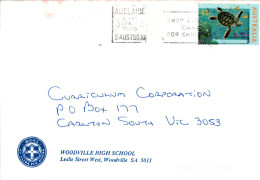 ADELAIDE
S AUST 5000
AUSTRALIA
CURRICULUM CORPORATION
P O BOX 177
CARLTON SOUTH VIC 3053
WOODVILLE HIGH SCHOOL
Leslie Street West, Woodville SA 5011